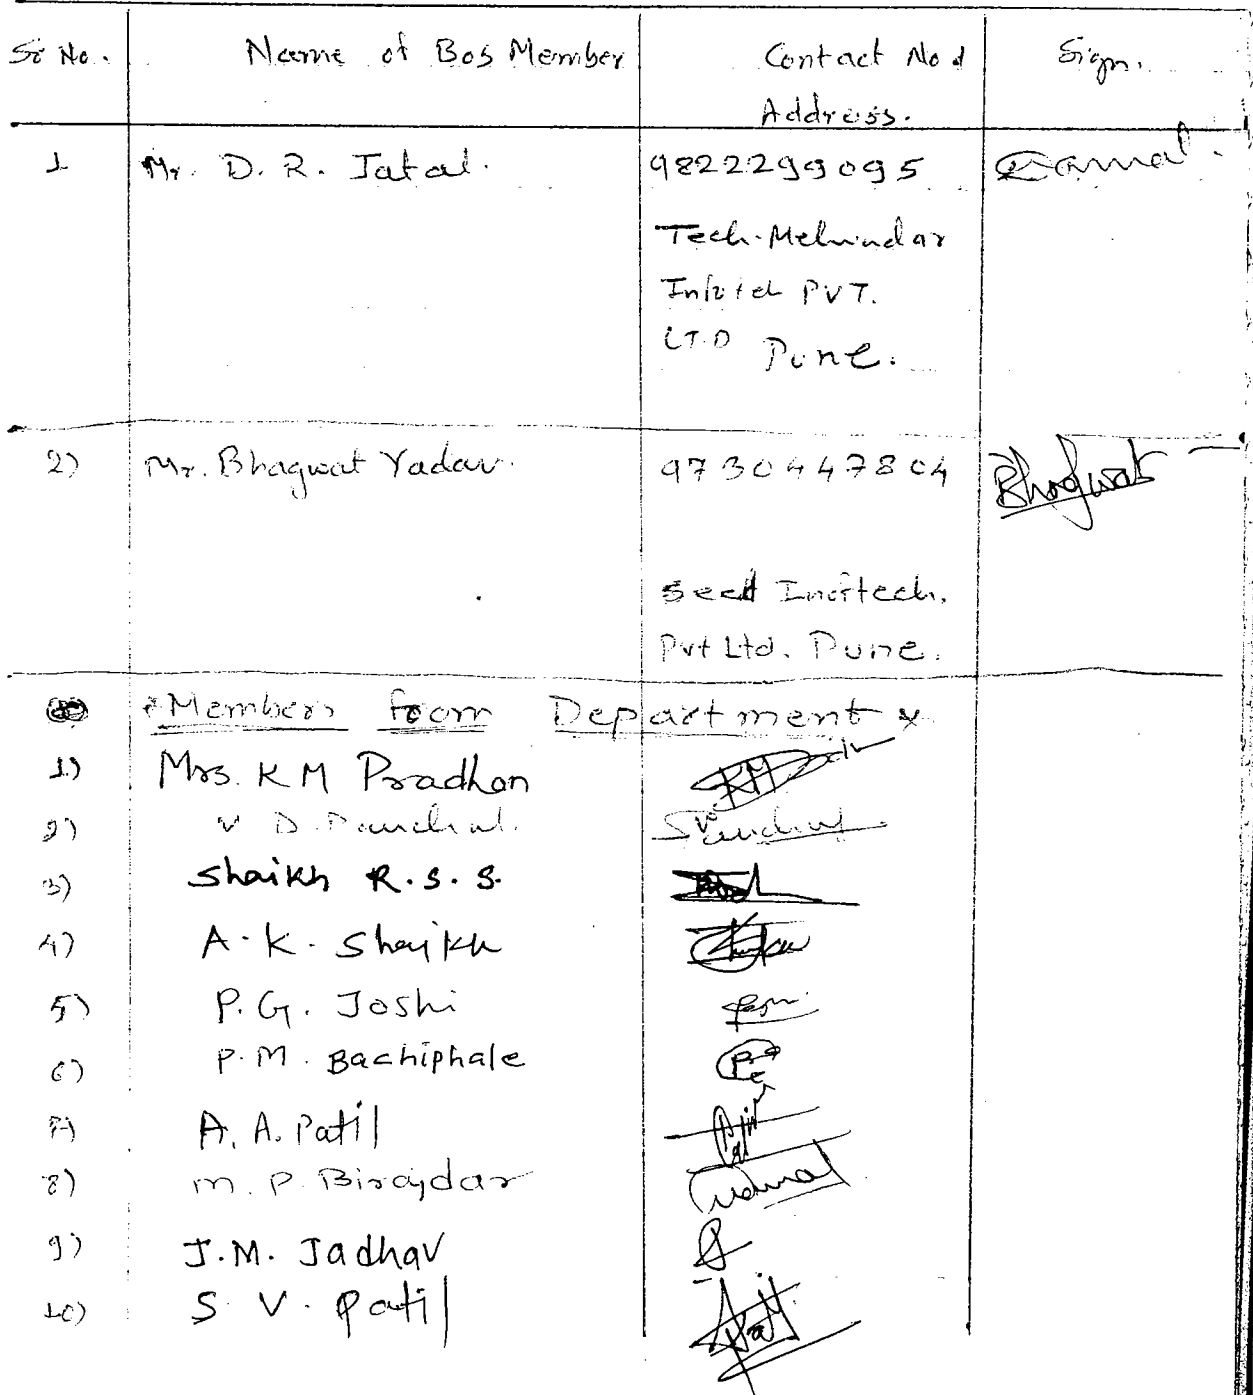 Sr No. Name of Bos Member Contact No & Sign.
Address.
1 Mr. D. R. Jatal. 9822299095
Tech-Mehindar
Infotch PVT.
LT.D Pune.
2) Mr. Bhagwat Yadav. 9730447804 Bhagwat
Seed Inoftech.
Pvt Ltd. Pune.
Members from Department
1) Mrs. K M Pradhan
2) V D. Panchal.
3) Shaikh R.S.S.
4) A.K. Shaikh
5) P.G. Joshi
6) P.M. Bachiphale
7) A. A. Patil
8) M. P. Birajdar
9) J.M. Jadhav
10) S. V. Patil